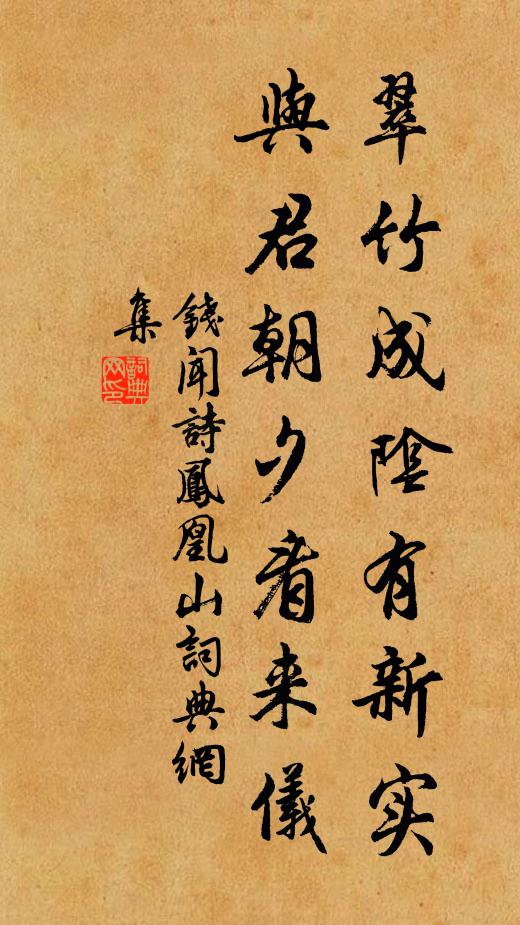 翠竹成陰有新实
與君朝夕看来儀
錢聞詩鳳凰山詞典網
集
詞典网印